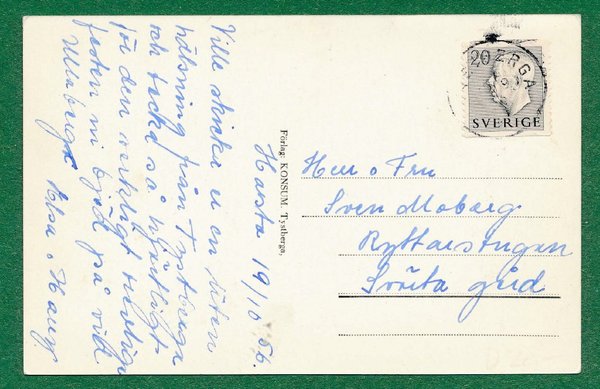 Harsta 19/10 56.
Ville skicka er en liten
hälsning från Tystberga
och tacka så hjärtligt
för den verkligt trevliga
festen ni bjöd på vid
Ullaberg. Elsa o Harry
Förlag: KONSUM, Tystberga,
20
SVERIGE
Herr o Fru
Sven Moberg
Ryttarstugan